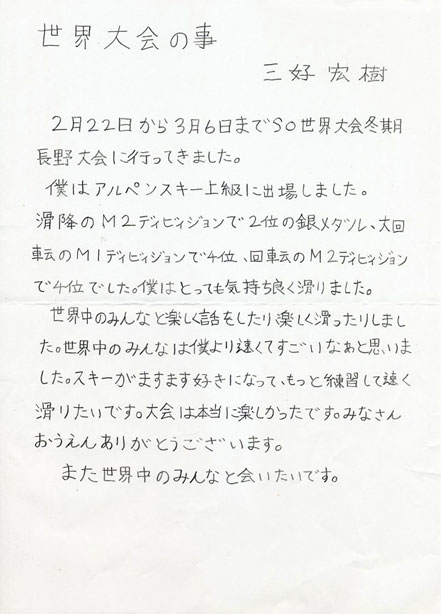 世界大会の事
三好宏樹
2月22日から3月6日までSO世界大会冬期
長野大会に行ってきました。
僕はアルペンスキー上級に出場しました。
滑降のM2ディビィジョンで2位の銀メダル、大回
転のM1ディビィジョンで4位、回転のM2ディビィジョン
で4位でした。僕はとっても気持ち良く滑りました。
世界中のみんなと楽しく話をしたり楽しく滑ったりしまし
た。世界中のみんなは僕より速くてすごいなぁと思いま
した。スキーがますます好きになって、もっと練習して速く
滑りたいです。大会は本当に楽しかったです。みなさん
おうえんありがとうございます。
また世界中のみんなと会いたいです。